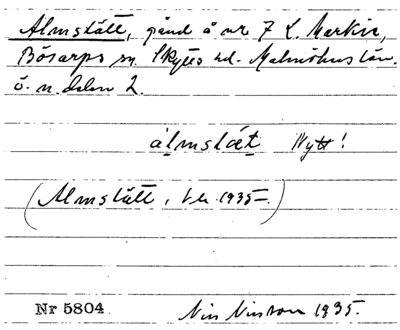 Almstätt, gård å nr 7 L. Markie,
Bösarps sn Skytts hd. Malmöhus län.
ö. n. delen 2.
almstæt Nytt!
(Almstätt, tk 1935.)
Nr 5804 Nils Nilsson 1935.